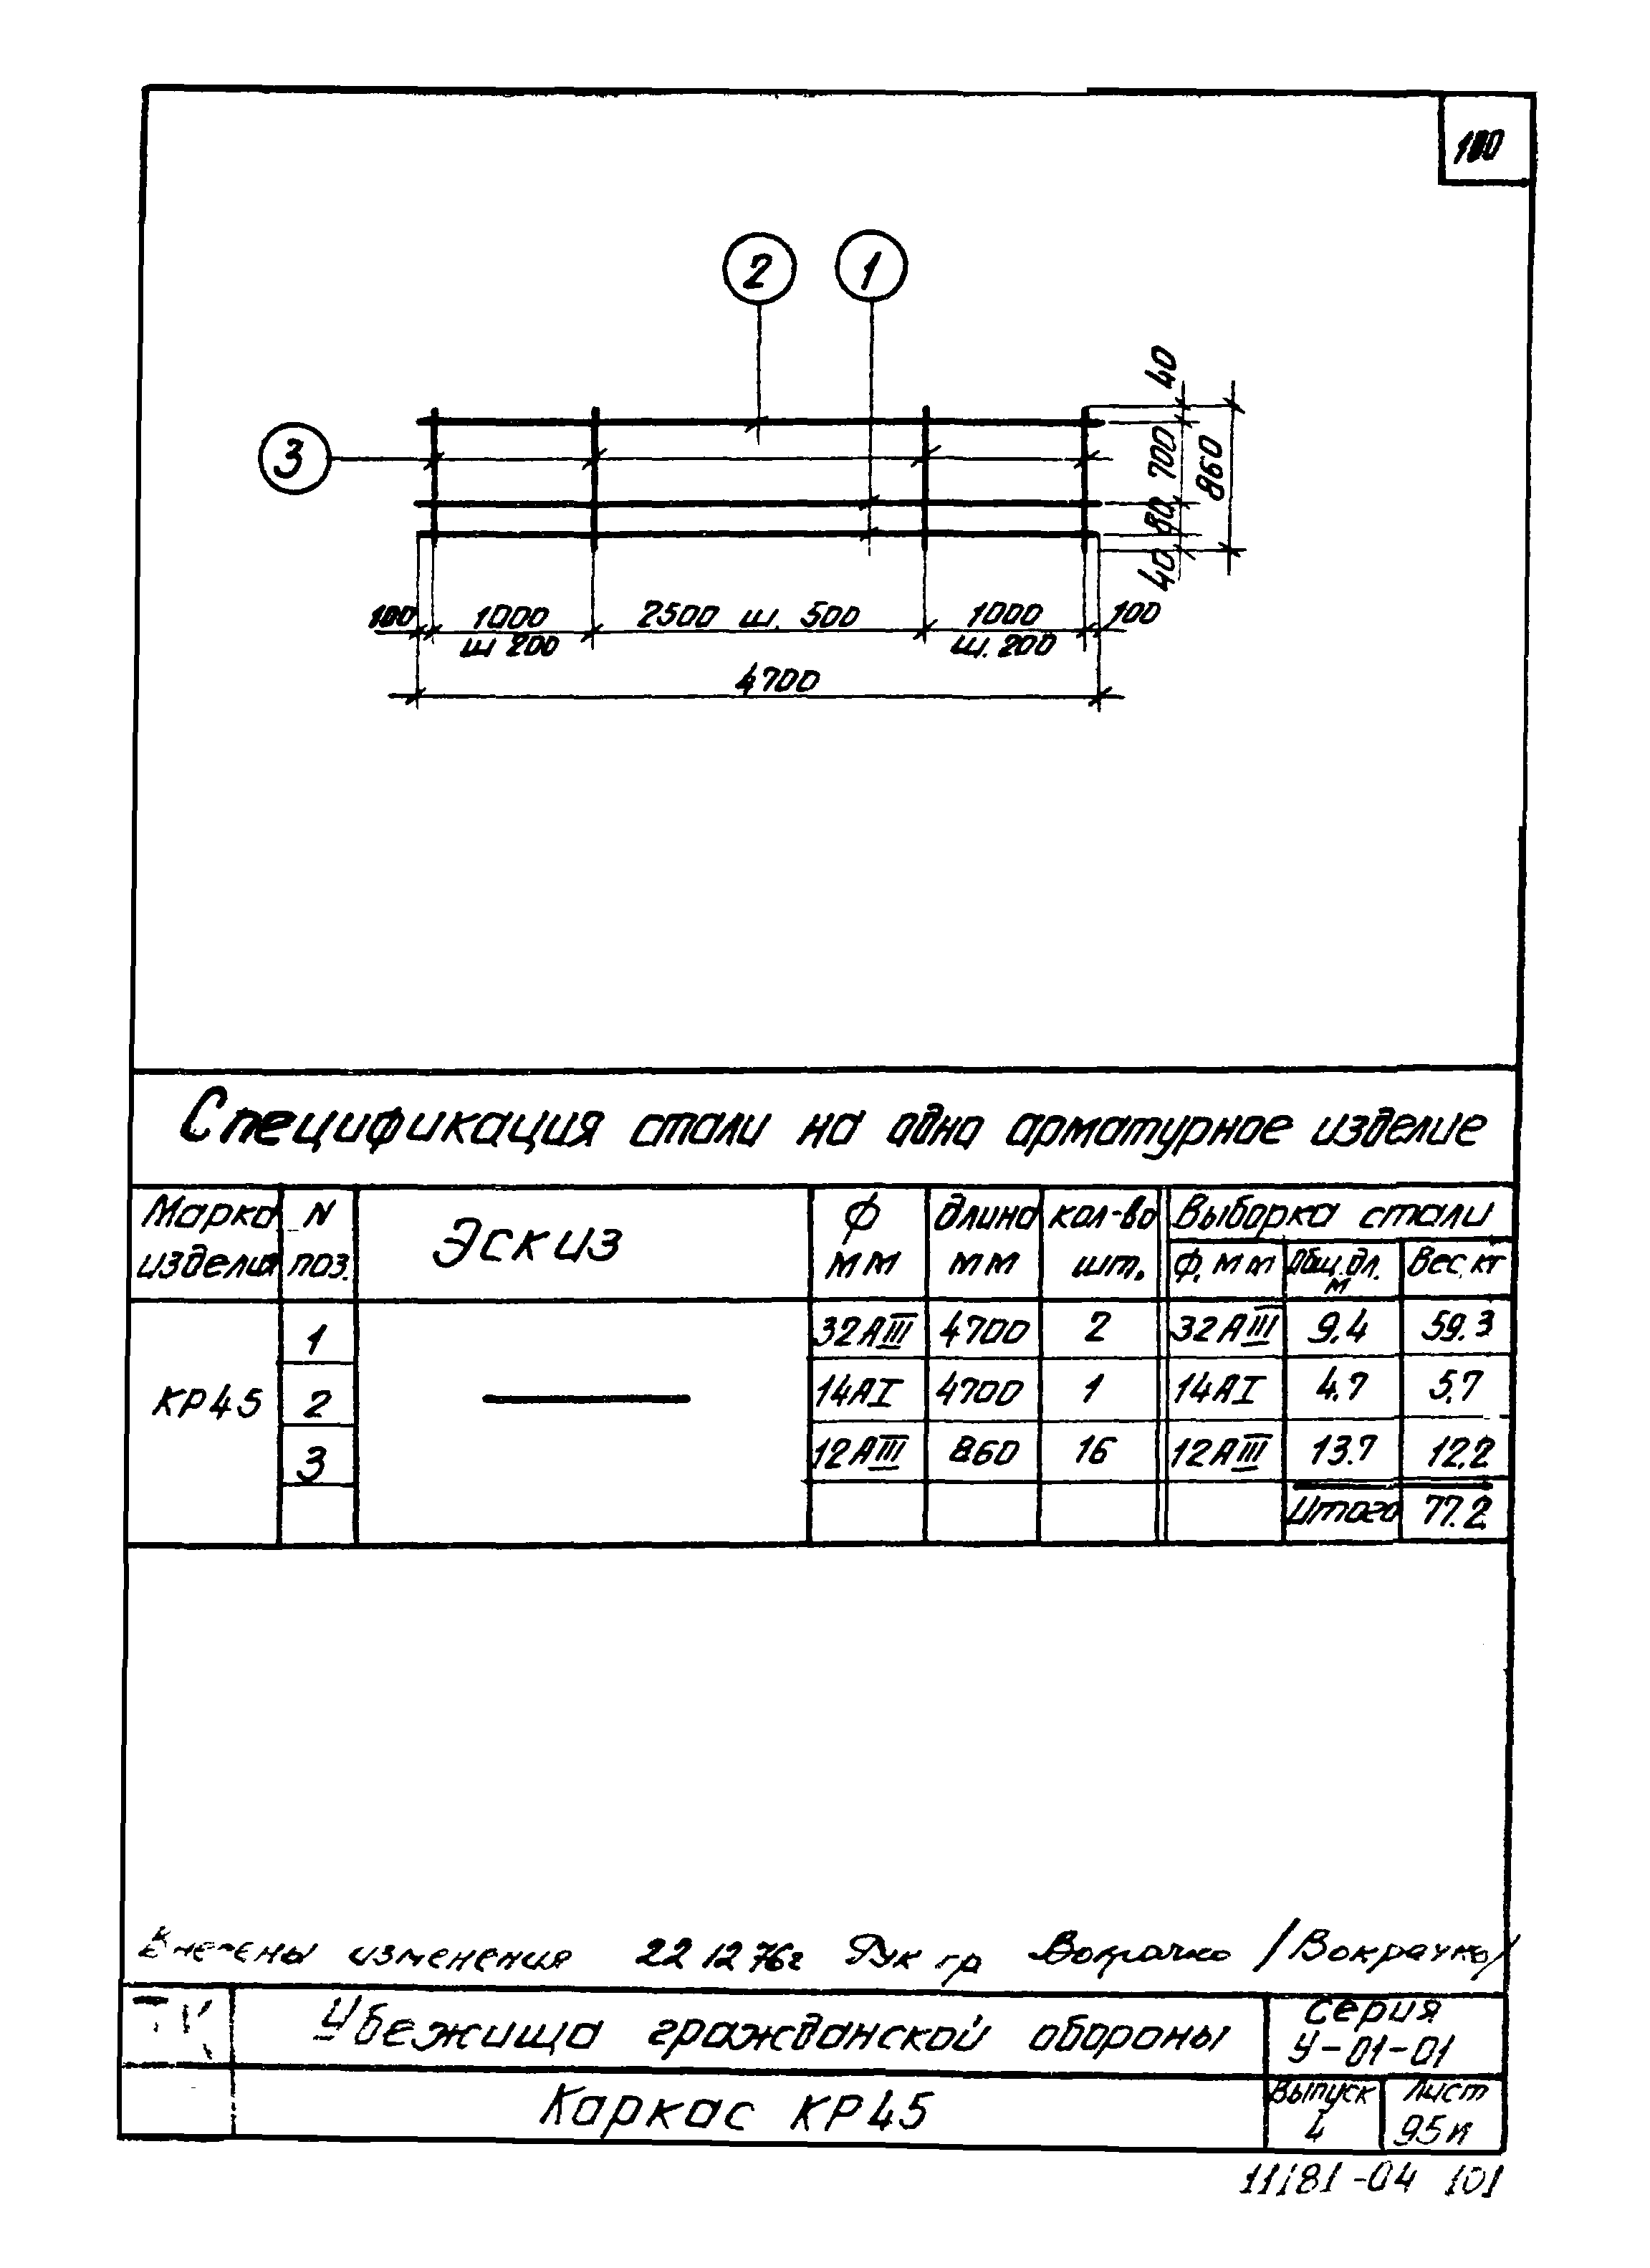 100
2 1
3
40
700
80
40
860
100 1000 2500 ш. 500 1000 100
ш 200 ш. 200
4700
Спецификация стали на одно арматурное изделие
Марка изделия N поз. Эскиз Ф мм Длина мм кол-во шт. Выборка стали
Ф, мм Общ. дл. м Вес, кг
КР45
1 32АIII 4700 2 32АIII 9.4 59.3
2 14АI 4700 1 14АI 4.7 5.7
3 12АIII 860 16 12АIII 13.7 12.2
Итого 77.2
Внесены изменения 22 12 76г Рук гр Вокрачко /Вокрачко/
Убежища гражданской обороны
Серия
У-01-01
Каркас КР45
Выпуск Лист
4 95и
11181-04 101